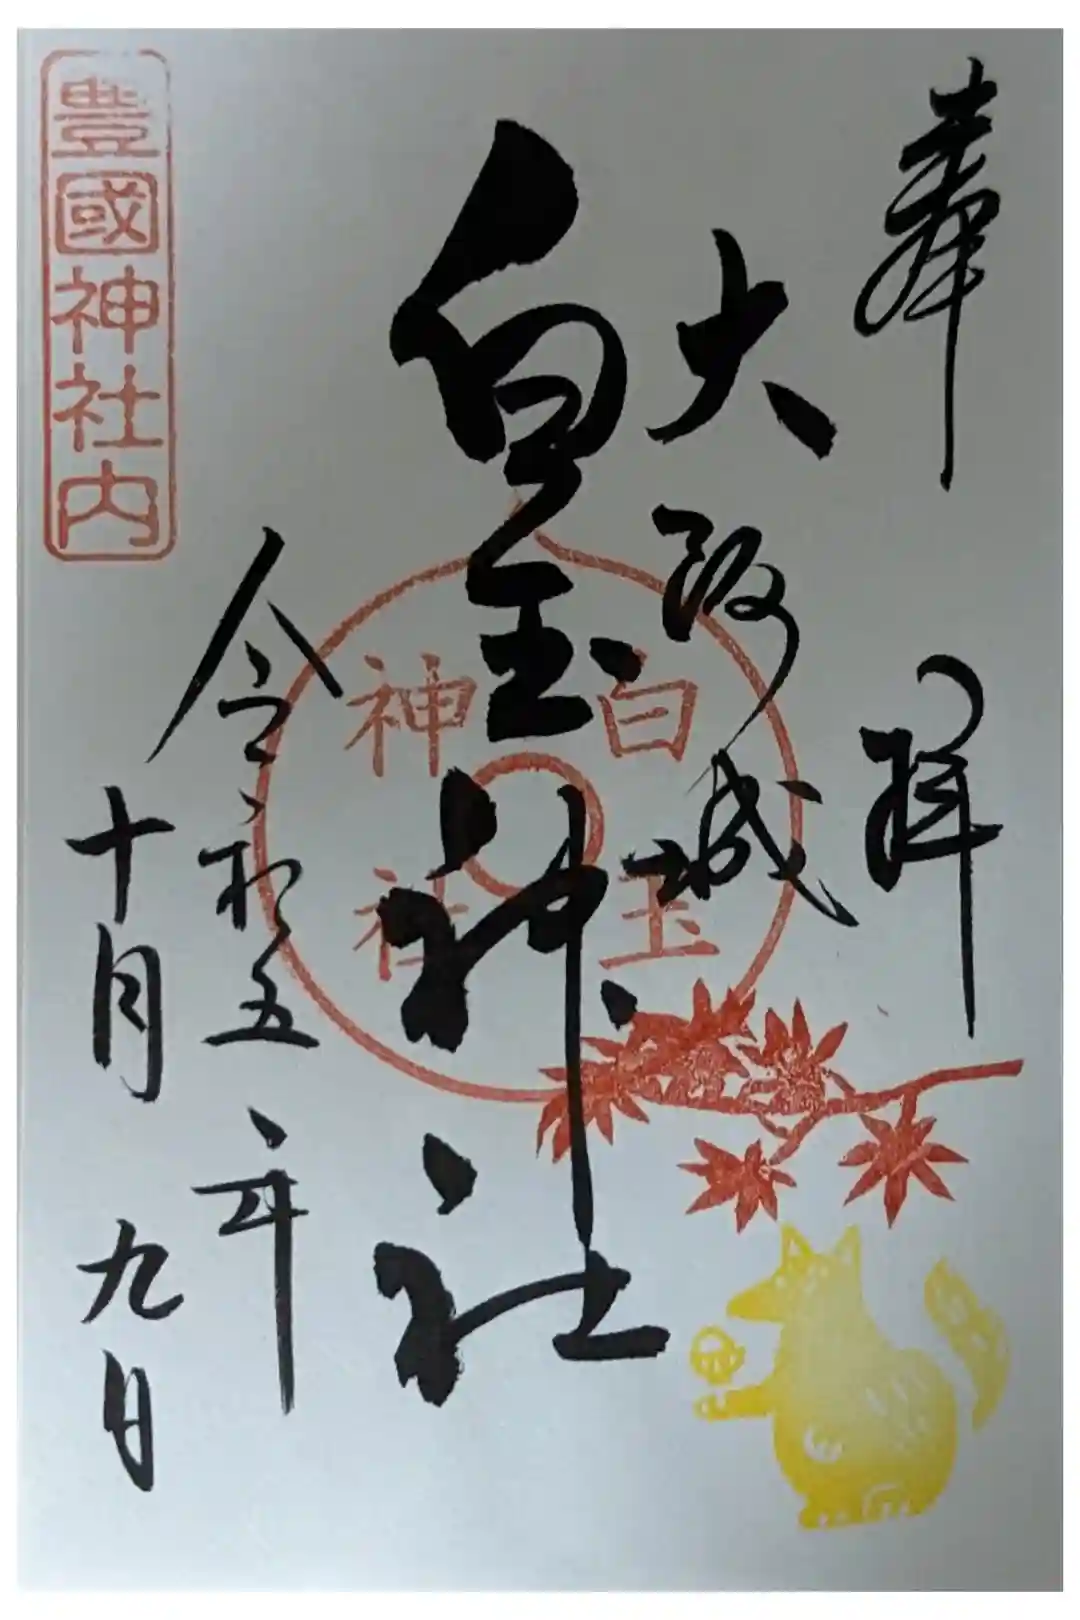 奉拝
大阪城
白玉神社
白玉
神社
令和五年
十月九日
豊國神社内